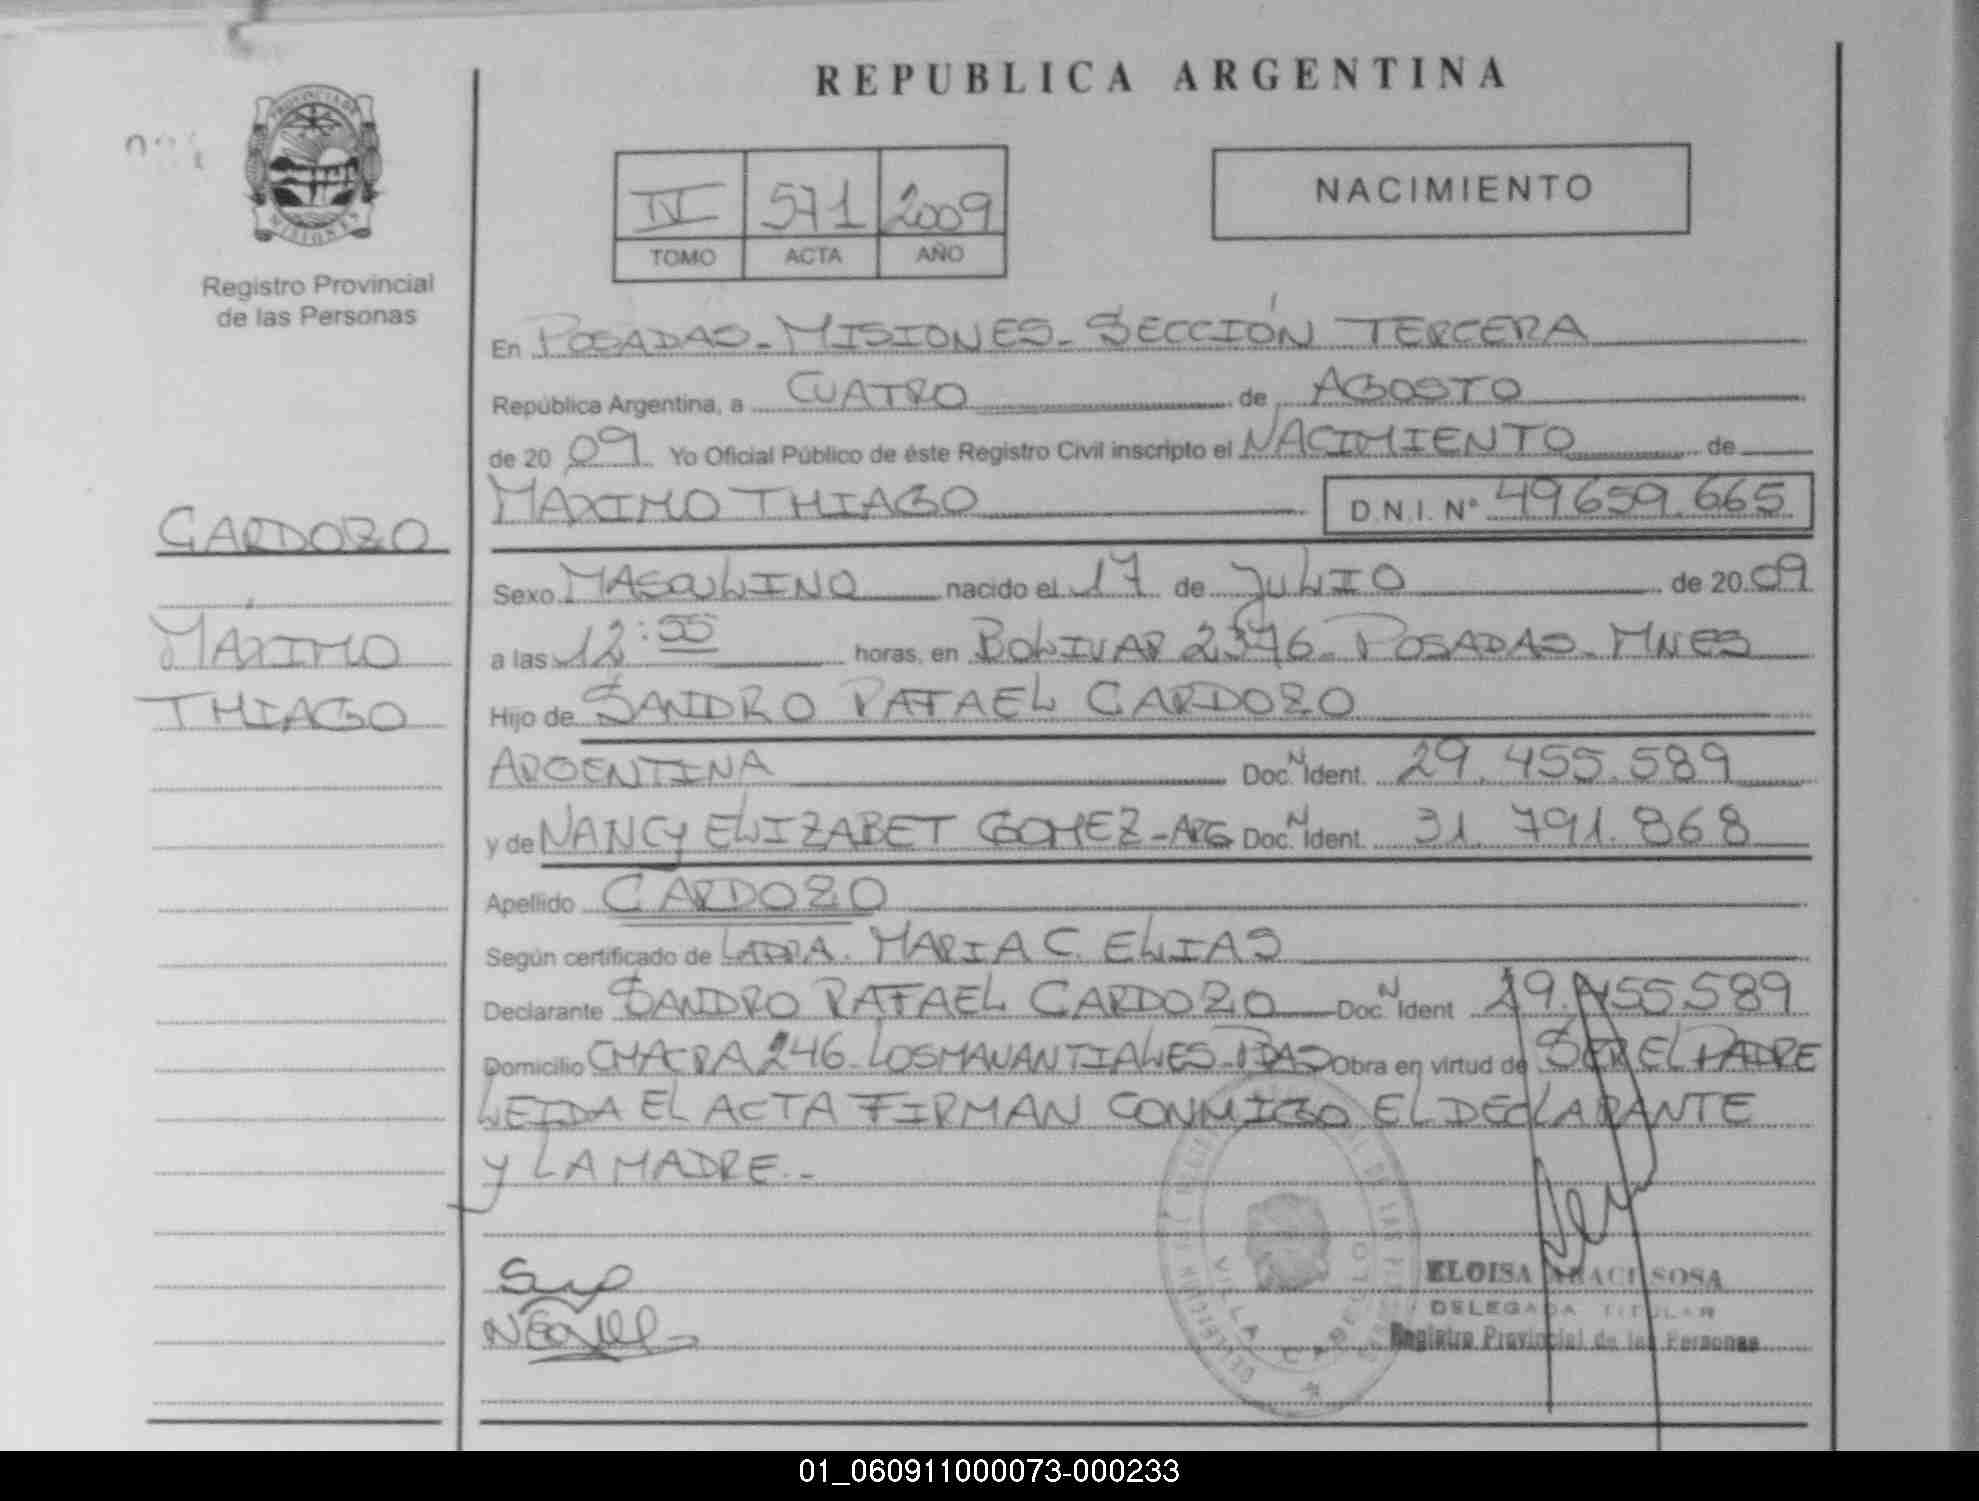 REPUBLICA ARGENTINA
PROVINCIA DE
MISIONES
Registro Provincial
de las Personas
IV 571 2009
TOMO ACTA AÑO
NACIMIENTO
En POSADAS-MISIONES-SECCIÓN TERCERA
República Argentina, a CUATRO de AGOSTO
de 20 09 Yo Oficial Público de éste Registro Civil inscripto el NACIMIENTO de
MAXIMO THIAGO D.N.I. Nº 49659.665
CARDOZO
MÁXIMO
THIAGO
Sexo MASCULINO nacido el 17 de JULIO de 20 09
a las 12:55 horas, en BOLIVAR 2376-POSADAS-MNES
Hijo de SANDRO RAFAEL CARDOZO
ARGENTINA Doc. N Ident. 29.455.589
y de NANCY ELIZABET GOMEZ-ARG Doc. N Ident. 31.791.868
Apellido CARDOZO
Según certificado de LA DRA. MARIA C. ELIAS
Declarante SANDRO RAFAEL CARDOZO Doc. N Ident 29.455.589
Domicilio CHACRA 246-LOS MANANTIALES-PDAS Obra en virtud de SER EL PADRE
LEIDA EL ACTA FIRMAN CONMIGO EL DECLARANTE
Y LA MADRE.-
VILLA CABELLO
ELOISA ARACI SOSA
DELEGADA TITULAR
Registro Provincial de las Personas
01_060911000073-000233